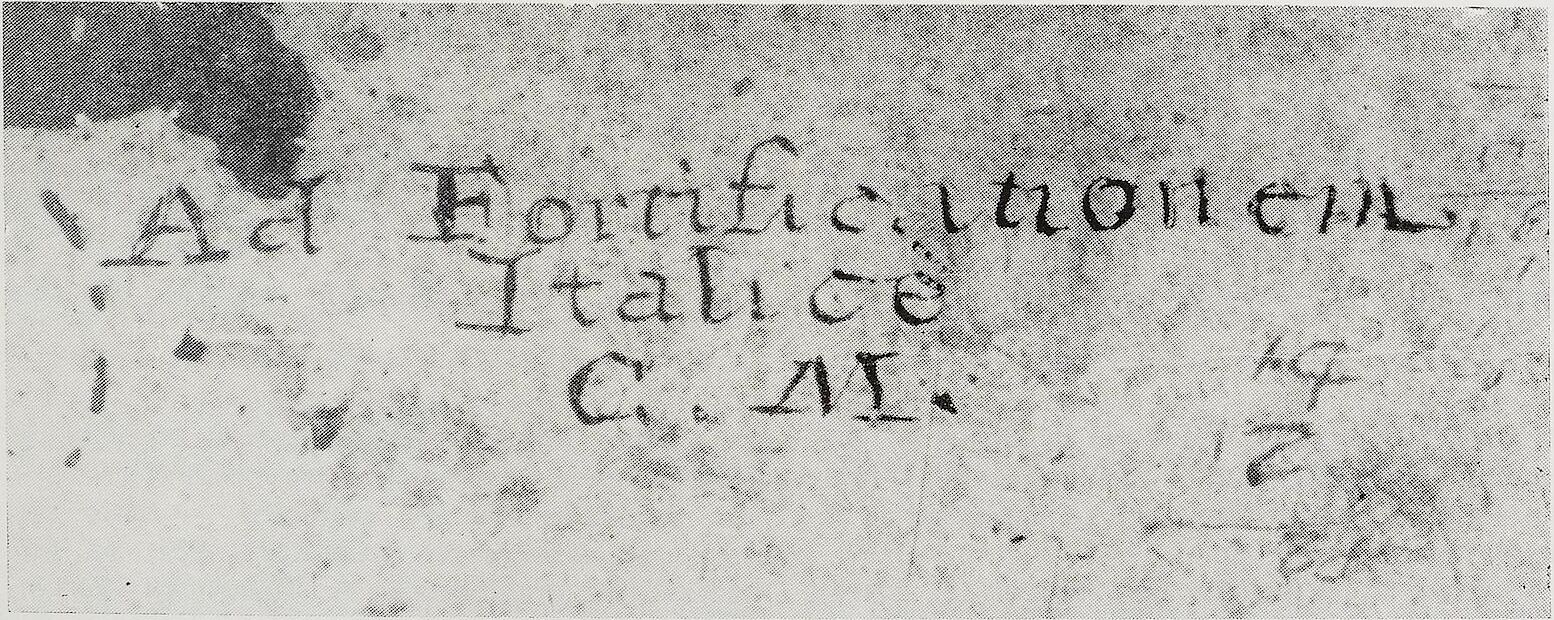 Ad Fortificationem
Italicè
C. M.